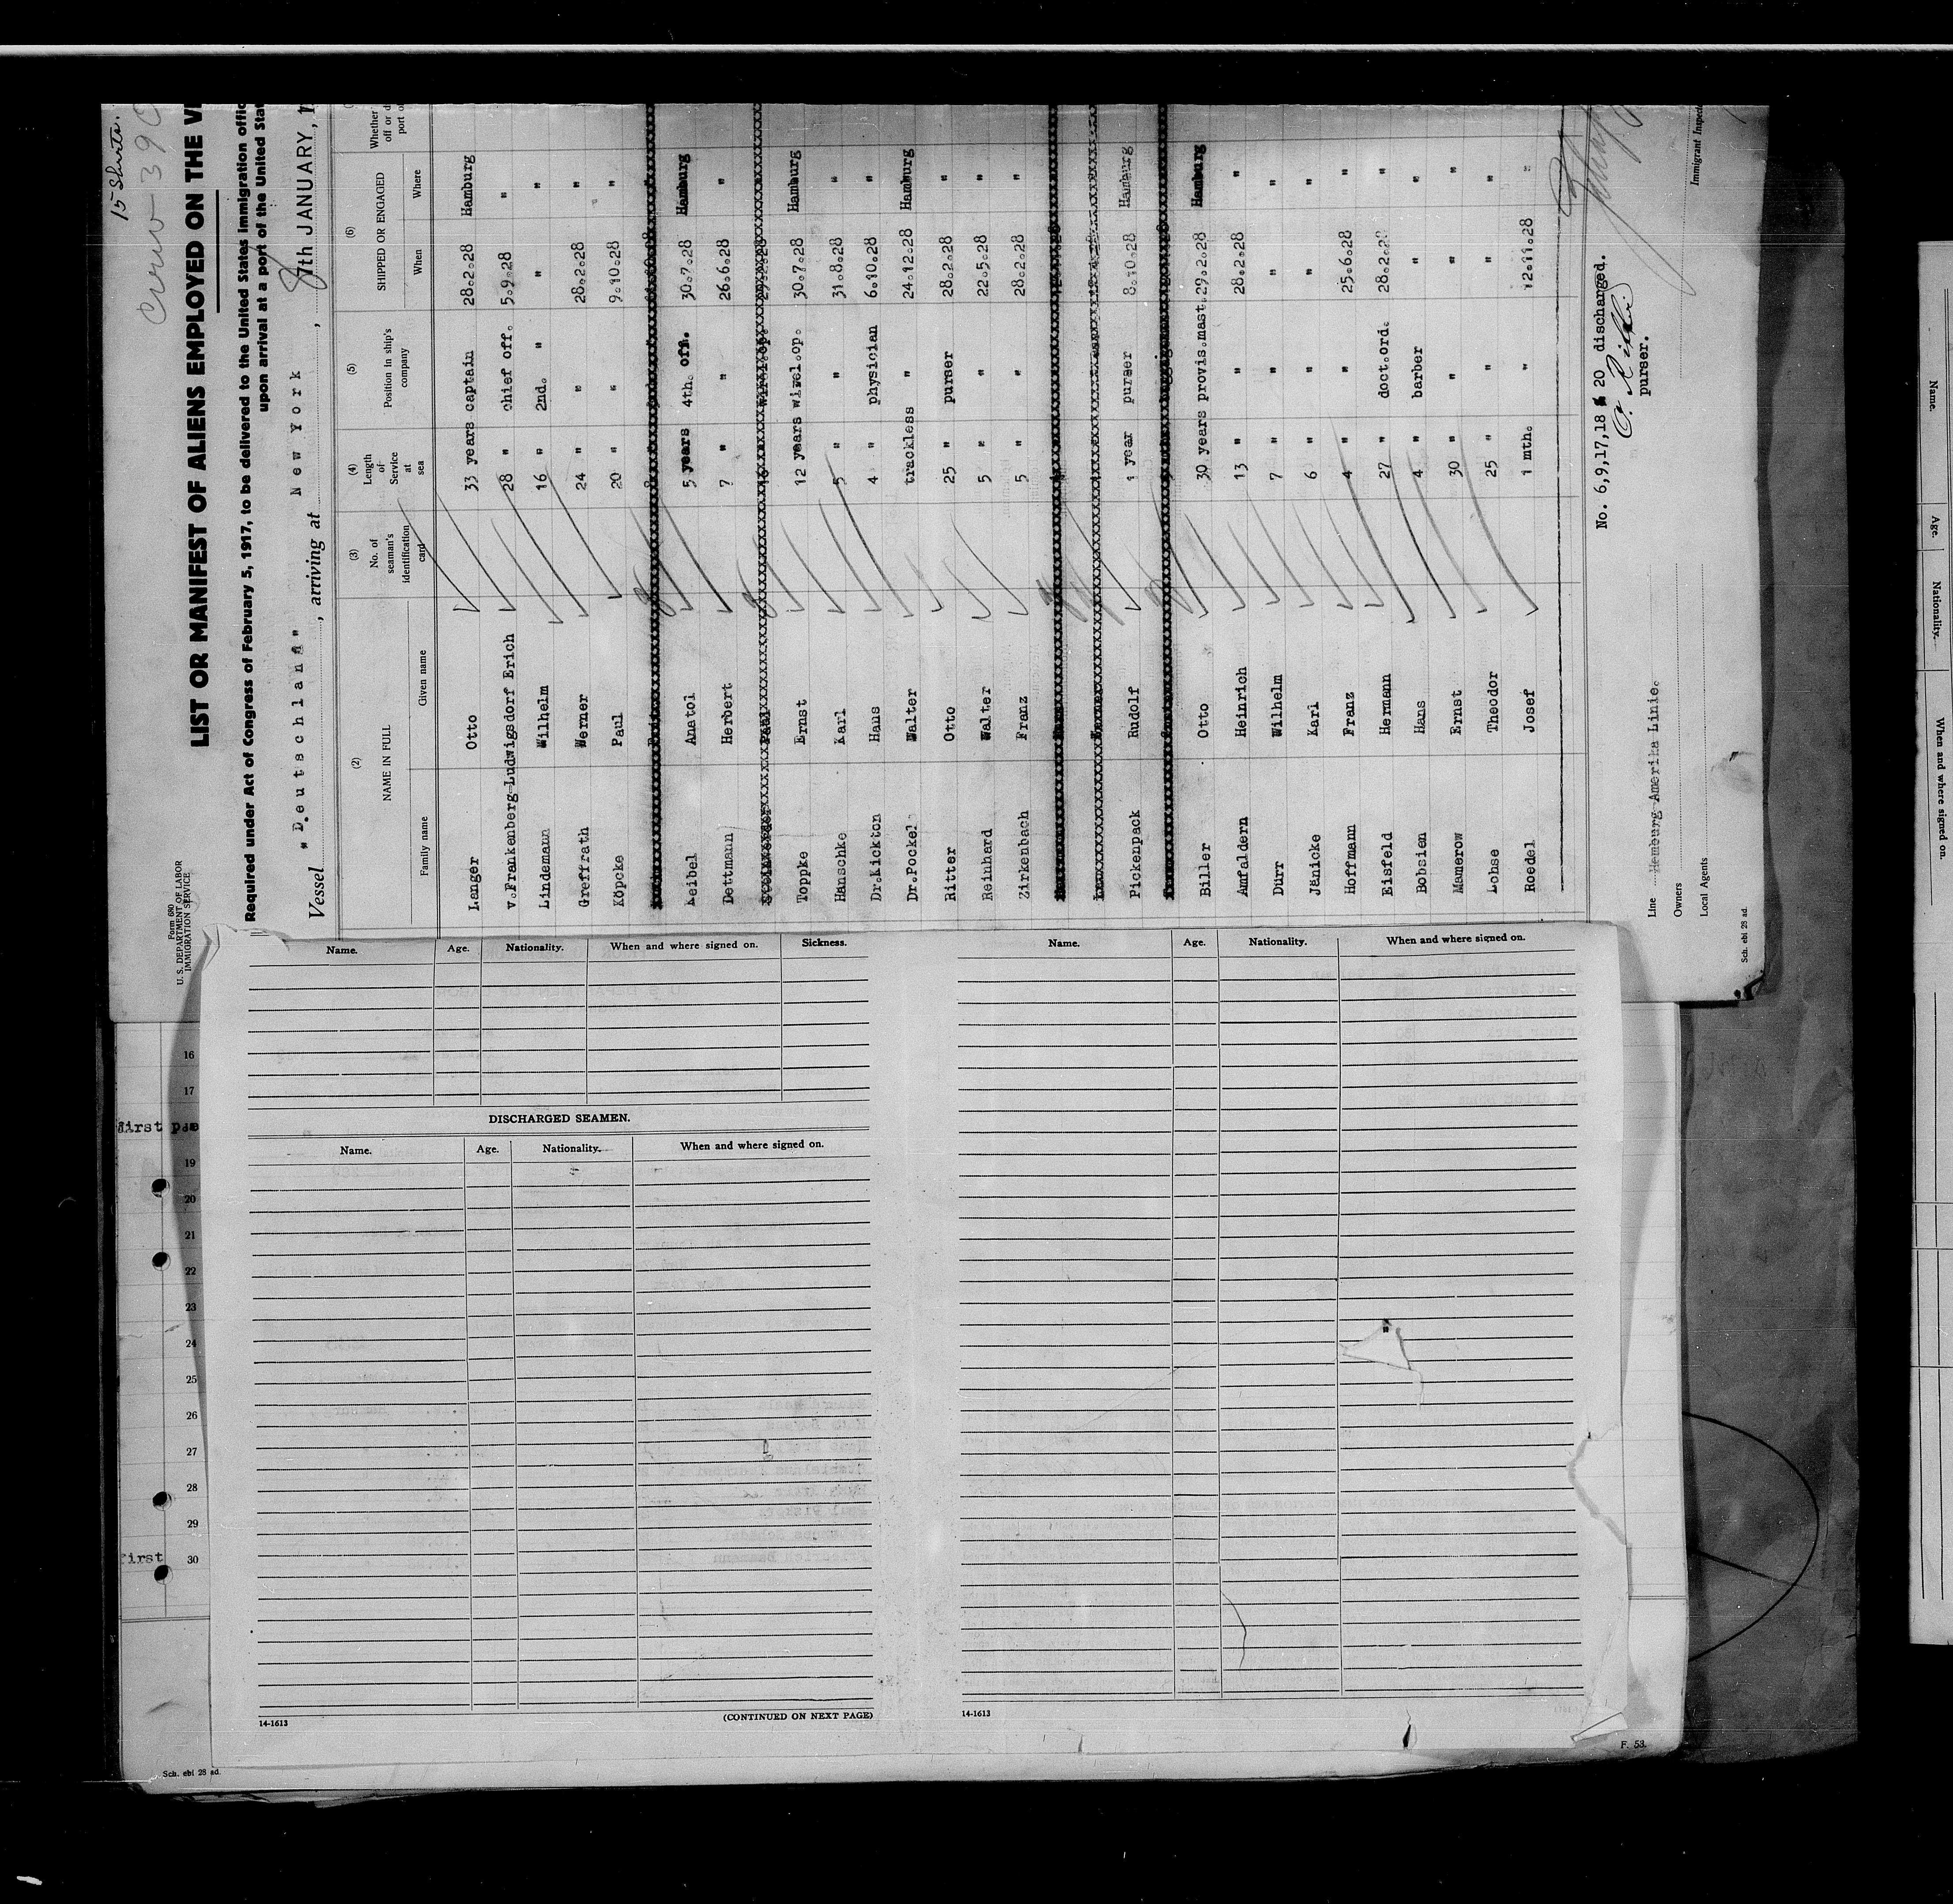 15 Sheets.
Crew 390
Form 680
U. S. DEPARTMENT OF LABOR
IMMIGRATION SERVICE
LIST OR MANIFEST OF ALIENS EMPLOYED ON THE
Required under Act of Congress of February 5, 1917, to be delivered to the United States immigration
upon arrival at a port of the United
Vessel "Deutschland", arriving at New York, 7th JANUARY,
(2) (3) (4) (5) (6)
NAME IN FULL No. of seaman's identification card Length of Service at sea Position in ship's company SHIPPED OR ENGAGED Whether
Family name Given name When Where
Langer Otto 33 years captain 28.2.28 Hamburg
v.Frankenberg-Ludwigsdorf Erich 28 " chief off. 5.9.28 "
Lindemann Wilhelm 16 " 2nd. " " "
Greffrath Werner 24 " " 28.2.28 "
Köpcke Paul 20 " " 9.10.28 "
Keibel Anatol 5 years 4th. off. 30.7.28 Hamburg
Dettmann Herbert 7 " " 26.6.28 "
Toppke Ernst 12 years wirel.op. 30.7.28 Hamburg
Hanschke Karl 5 " " 31.8.28 "
Dr.Kickton Hans 4 " physician 6.10.28 "
Dr.Pockel Walter trackless " 24.12.28 Hamburg
Ritter Otto 25 " purser 28.2.28 "
Reinhard Walter 5 " " 22.5.28 "
Zirkenbach Franz 5 " " 28.2.28 "
Pickenpack Rudolf 1 year purser 8.10.28 Hamburg
Biller Otto 30 years provis.mast. 29.2.28 Hamburg
Amfaldern Heinrich 13 " " 28.2.28 "
Dürr Wilhelm 7 " " " "
Jänicke Karl 6 " " " "
Hoffmann Franz 4 " " 25.6.28 "
Eisfeld Hermann 27 " doct.ord. 28.2.28 "
Bobsien Hans 4 " barber " "
Mamerow Ernst 30 " " " "
Lohse Theodor 25 " " " "
Roedel Josef 1 mth. " 12.11.28 "
No. 6,9,17,18 & 20 discharged.
purser.
Line Hamburg Amerika Linie.
Owners
Local Agents
Immigrant
Sch. ebi 28 ad.
Name. Age. Nationality. When and where signed on. Sickness.
DISCHARGED SEAMEN.
Name. Age. Nationality. When and where signed on.
14-1613
(CONTINUED ON NEXT PAGE)
Name. Age. Nationality. When and where signed on.
14-1613
F. 53.
16
17
first
19
20
21
22
23
24
25
26
27
28
29
first 30
Sch. ebi 28 ad.
Name. Age. Nationality. When and where signed on.